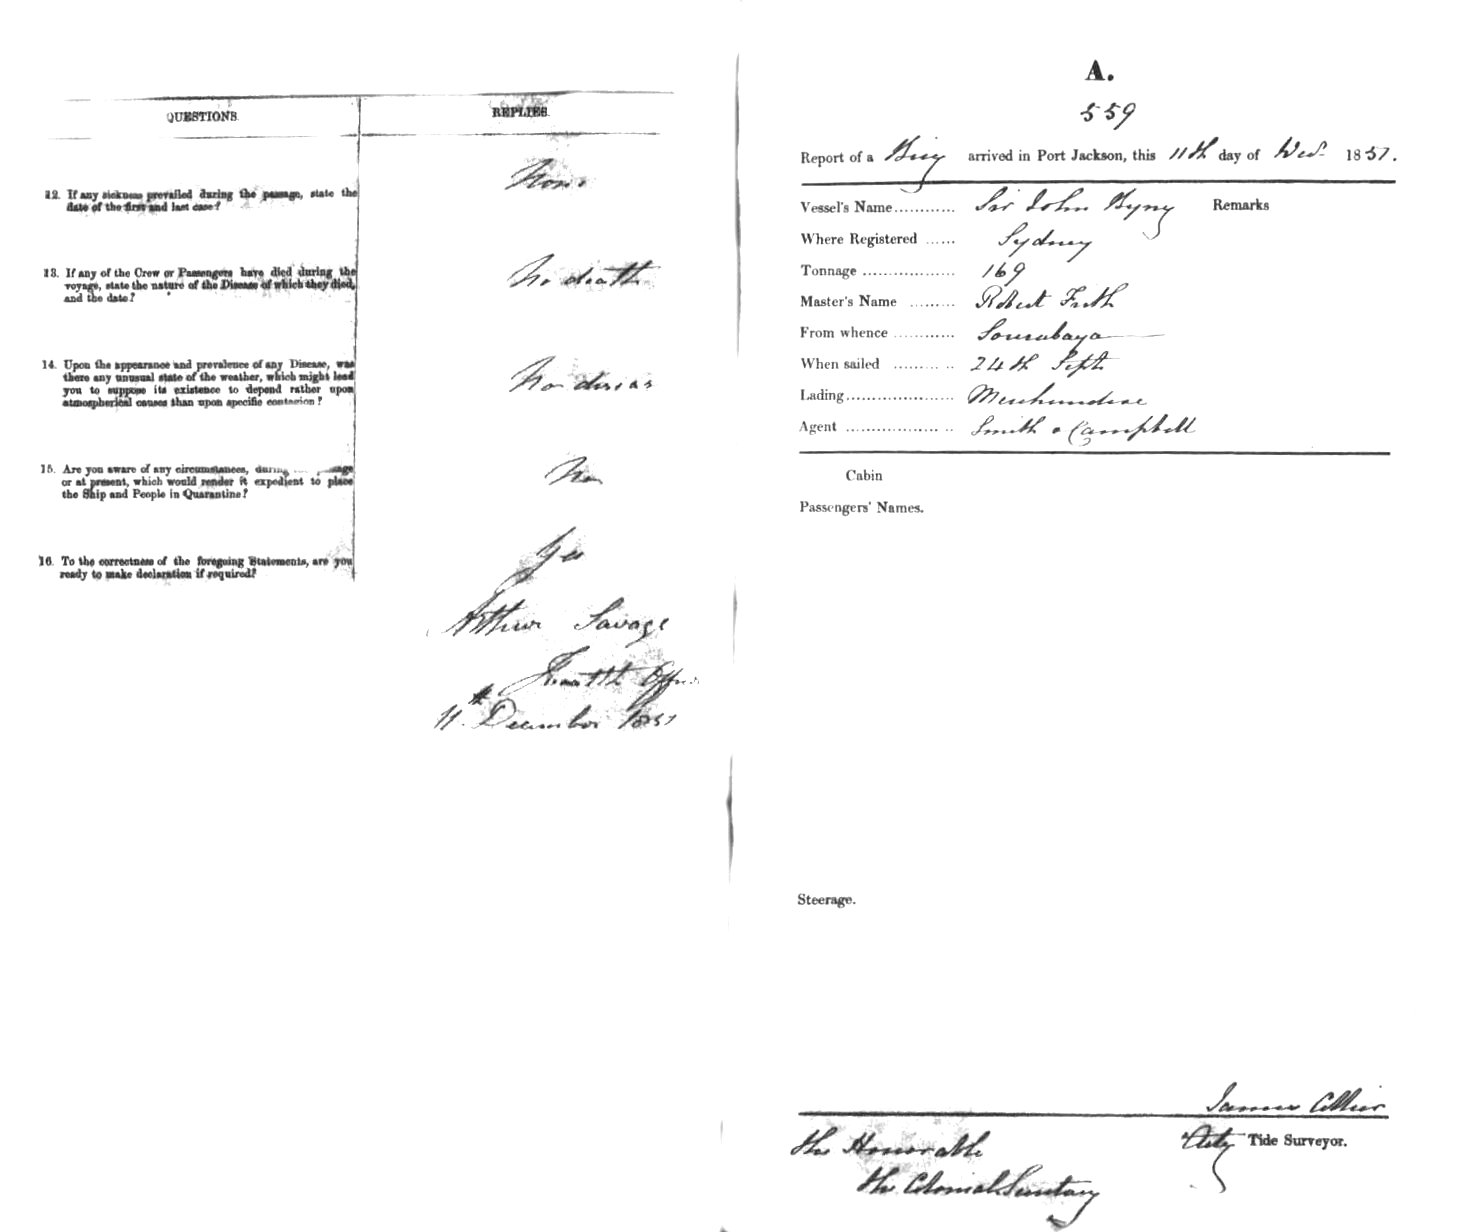 QUESTIONS.
REPLIES.
12. If any sickness prevailed during the passage, state the
date of the first and last case?
None
13. If any of the Crew or Passengers have died during the
voyage, state the nature of the Disease of which they died,
and the date?
No death
14. Upon the appearance and prevalence of any Disease, was
there any unusual state of the weather, which might lead
you to suppose its existence to depend rather upon
atmospherical causes than upon specific contagion?
No diseas
15. Are you aware of any circumstances, during
or at present, which would render it expedient to place
the Ship and People in Quarantine?
No
16. To the correctness of the foregoing Statements, are you
ready to make declaration if required?
Yes
Arthur Savage
Health Officer
11th December 1851
A.
559
Report of a Brig arrived in Port Jackson, this 11th day of Decr 1851.
Vessel's Name............ Sir John Byng Remarks
Where Registered ...... Sydney
Tonnage .................. 169
Master's Name ......... Robert Firth
From whence ............ Sourabaya
When sailed ......... .. 24th Sept
Lading..................... Merchandise
Agent .................. .. Smith & Campbell
Cabin
Passengers' Names.
Steerage.
James Collier
Actg Tide Surveyor.
The Honorable
The Colonial Secretary